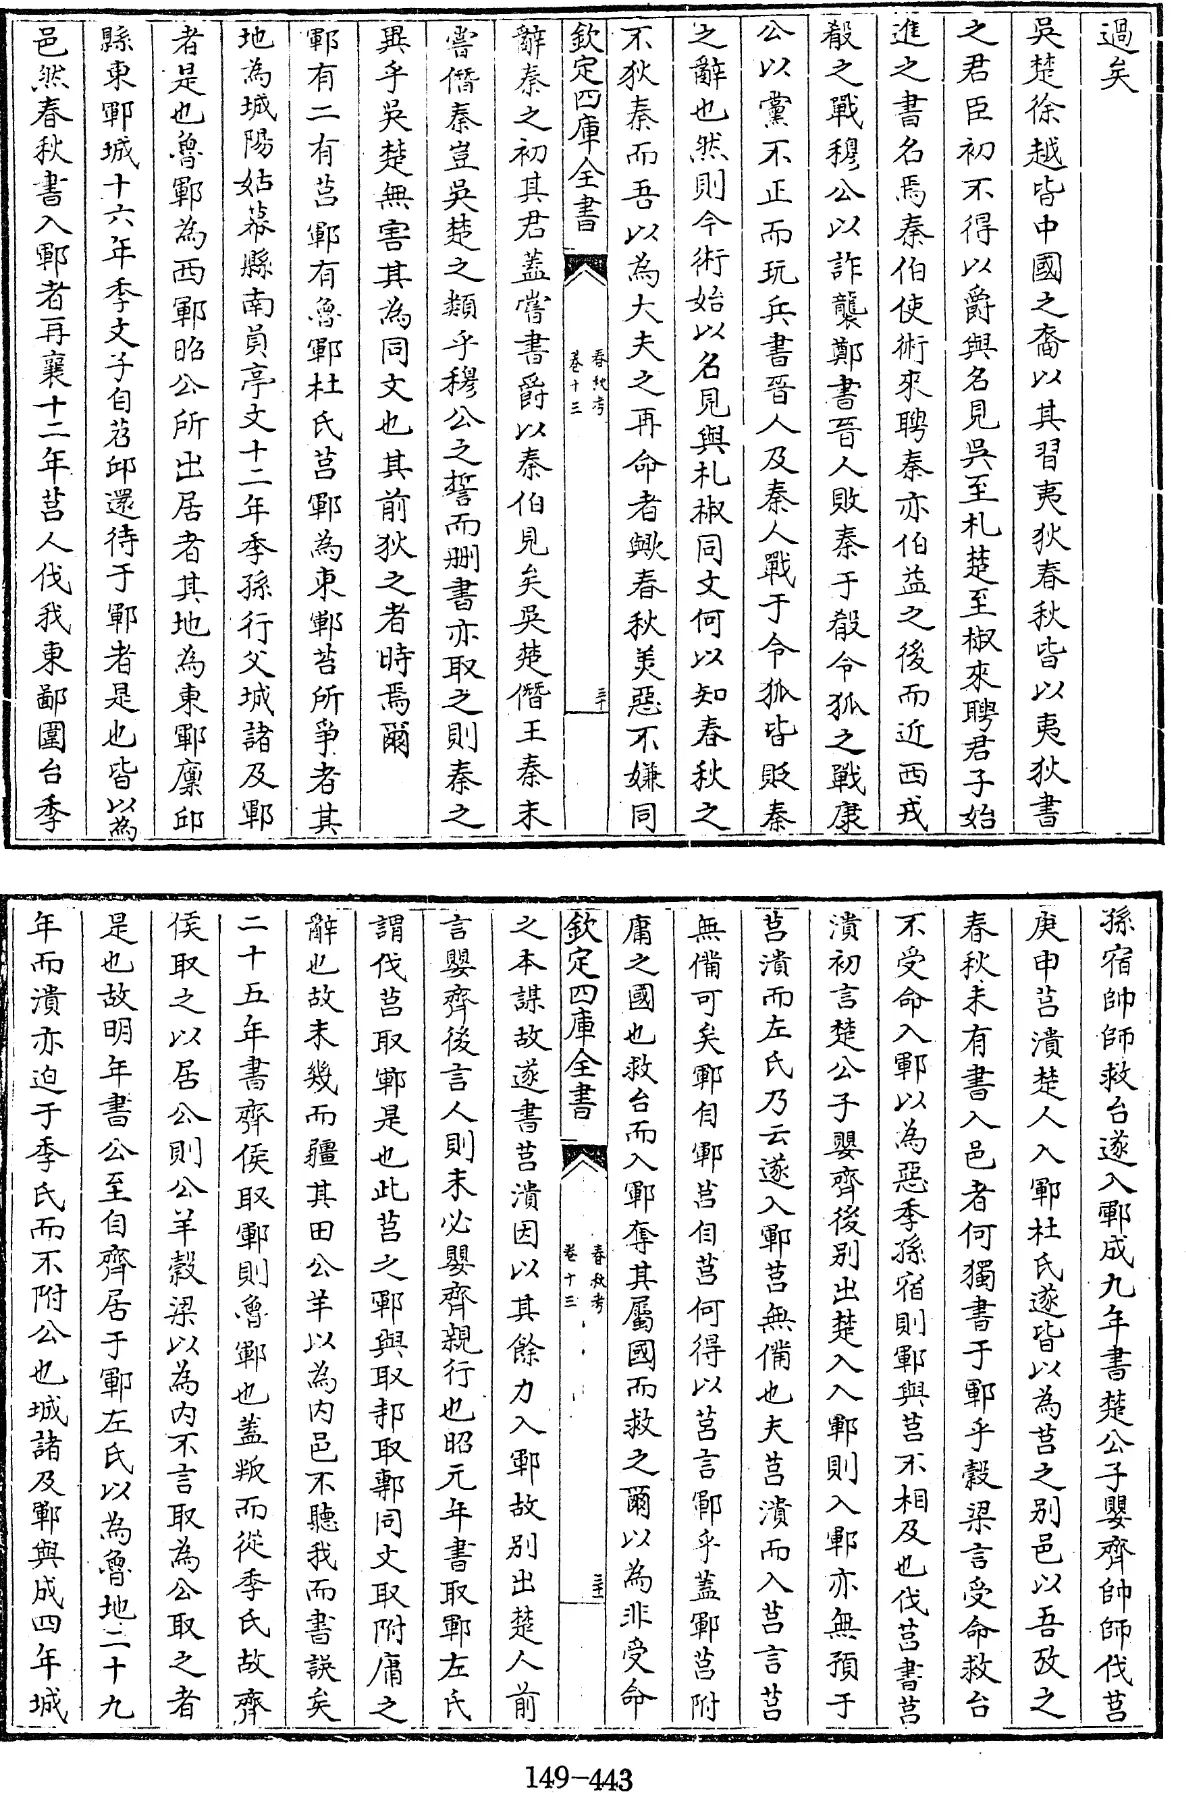 過矣
吳楚徐越皆中國之裔以其習夷狄春秋皆以夷狄書
之君臣初不得以爵與名見吳至札楚至椒來聘君子始
進之書名焉秦伯使術來聘秦亦伯益之後而近西戎
殽之戰穆公以詐襲鄭書晉人敗秦于殽令狐之戰康
公以黨不正而玩兵書晉人及秦人戰于令狐皆貶秦
之辭也然則今術始以名見與札椒同文何以知春秋之
不狄秦而吾以為大夫之再命者歟春秋美惡不嫌同
欽定四庫全書
春秋考
卷十三
三十
辭秦之初其君蓋嘗書爵以秦伯見矣吳楚僭王秦未
嘗僭秦豈吳楚之類乎穆公之誓而刪書亦取之則秦之
異乎吳楚無害其為同文也其前狄之者時焉爾
鄆有二有莒鄆有魯鄆杜氏莒鄆為東鄆莒所爭者其
地為城陽姑幕縣南員亭文十二年季孫行父城諸及鄆
者是也魯鄆為西鄆昭公所出居者其地為東鄆廩邱
縣東鄆城十六年季文子自苕邱還待于鄆者是也皆以為
邑然春秋書入鄆者再襄十二年莒人伐我東鄙圍台季
孫宿帥師救台遂入鄆成九年書楚公子嬰齊帥師伐莒
庚申莒潰楚人入鄆杜氏遂皆以為莒之別邑以吾攷之
春秋未有書入邑者何獨書于鄆乎穀梁言受命救台
不受命入鄆以為惡季孫宿則鄆與莒不相及也伐莒書莒
潰初言楚公子嬰齊後別出楚人入鄆則入鄆亦無預于
莒潰而左氏乃云遂入鄆莒無備也夫莒潰而入莒言莒
無備可矣鄆自鄆莒自莒何得以莒言鄆乎蓋鄆莒附
庸之國也救台而入鄆奪其屬國而救之爾以為非受命
欽定四庫全書
春秋考
卷十三
三十一
之本謀故遂書莒潰因以其餘力入鄆故別出楚人前
言嬰齊後言人則未必嬰齊親行也昭元年書取鄆左氏
謂伐莒取鄆是也此莒之鄆與取邿取鄟同文取附庸之
辭也故未幾而疆其田公羊以為內邑不聽我而書誤矣
二十五年書齊侯取鄆則魯鄆也蓋叛而從季氏故齊
侯取之以居公則公羊穀梁以為內不言取為公取之者
是也故明年書公至自齊居于鄆左氏以為魯地二十九
年而潰亦迫于季氏而不附公也城諸及鄆與成四年城
149-443